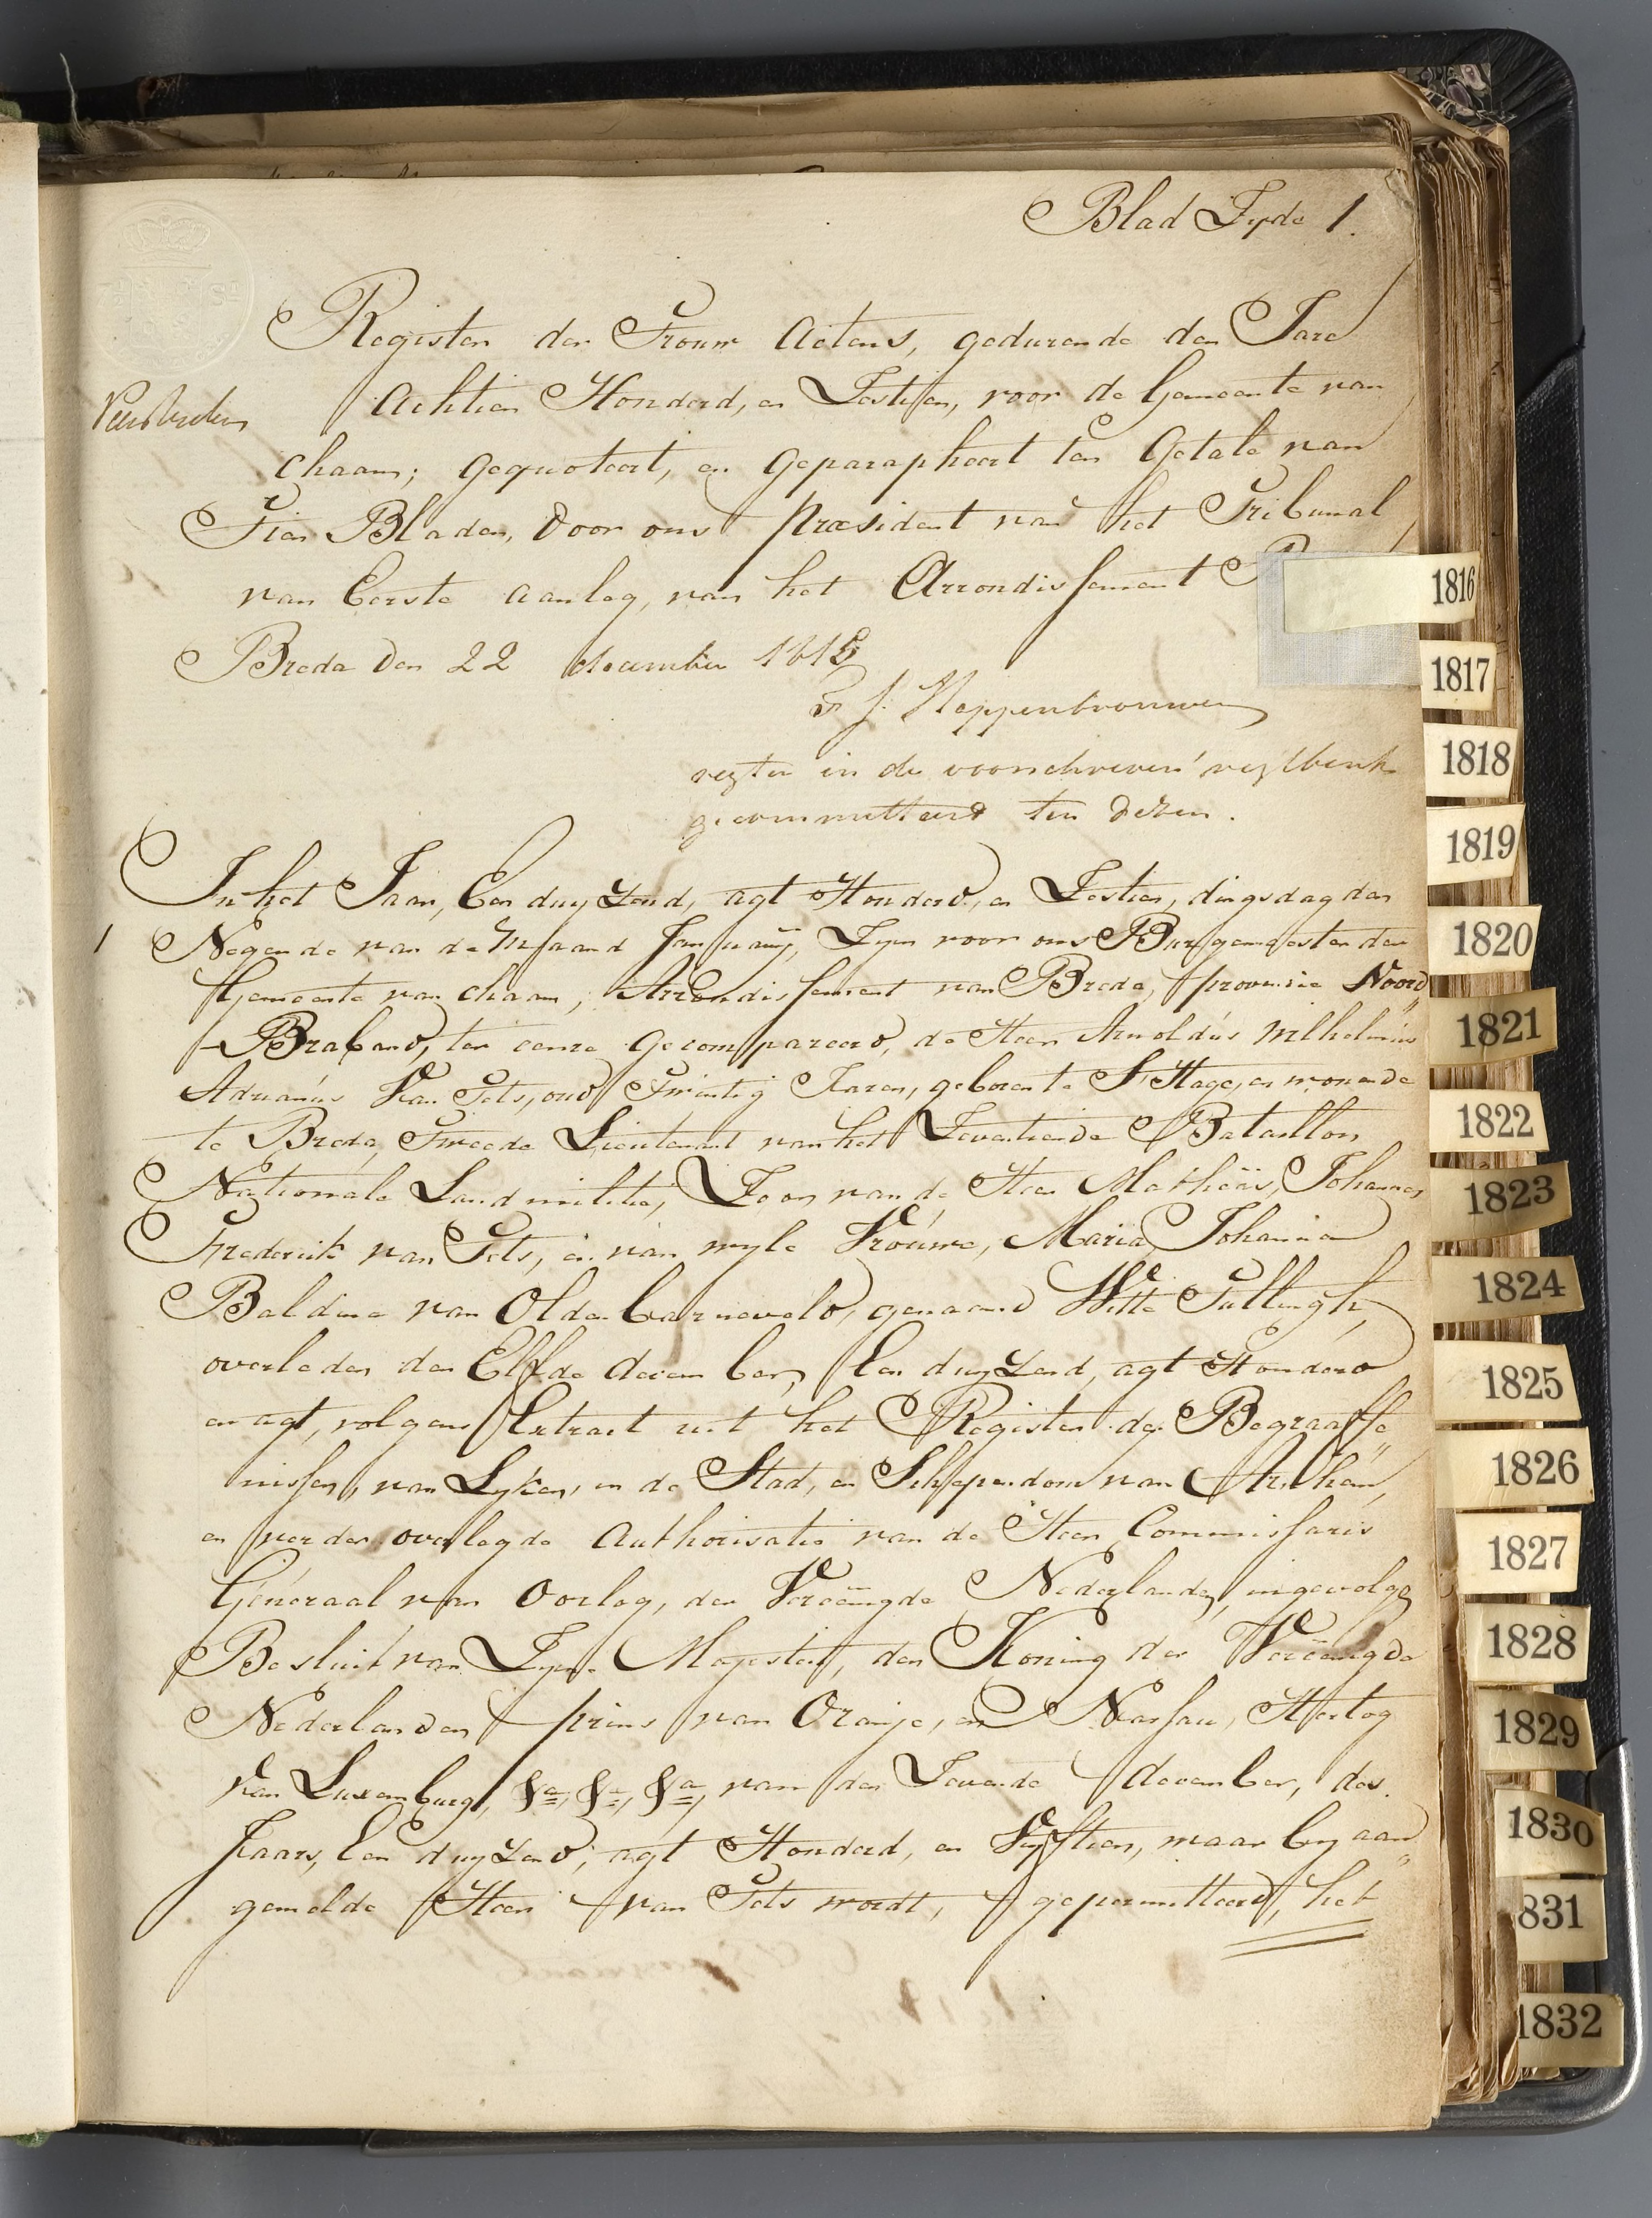 Blad Zyde 1.
Register der Trouw Actens, gedurende den Jare
Achtien Honderd, en Zestien, voor de Gemeente van
chaam; gequoteert, en geparapheert ten Getale van
Tien Bladen, door ons Præsident van het Tribunal
van Eerste aanleg, van het Arrondissement
Breda den 22 december 1815
J. Hoppenbrouwers
regter in de voorschreven regtbank
gecommitteerd ten dezen.
In het Jaar, Een duyzend, agt Honderd, en Zestien, dingsdag den
1 Negende van de Maand Januarij, Zyn voor ons Burgemeester der
Gemeente van chaam, Arrondissement van Breda, provincie Noord
-Braband, ten eenre gecompareerd, de Heer Arnoldus Wilhelmus
Adrianus Van Tets, oud Twintig Jaren, geboren te S'Hage, en wonende
te Breda, Tweede Lieutenant van het Zeventiende Bataillon
Nationale Landmilitie, Zoon van de Heer Matheus, Johannes
Frederick van Tets, en van wyle Vrouwe, Maria Johanna
Baldina van Olden barneveld, genaamd Witte Tullingh,
overleden den Elfde december, Een duyzend, agt Honderd
en agt, volgens Extract uit het Register der Begraaffe„
nissen, van Lyken, in de Stad, en Schependom van Arnhem,
en verder overlegde Authorisatie van de Heer Commissaris
Géneraal van Oorlog, der Vereenigde Nederlanden, ingevolge
Besluit van Zyne Majesteit, den Koning der Vereenigde
Nederlanden prins van Oranje, en Nassau, Hertog
Van Luxemburg, &a, &a, &a, van den Zevende december, des
Jaars, Een duyzend, agt Honderd, en Vyftien, waar by aan„
gemelde Heer van Tets wordt, gepermitteerd, het
1816
1817
1818
1819
1820
1821
1822
1823
1824
1825
1826
1827
1828
1829
1830
831
1832